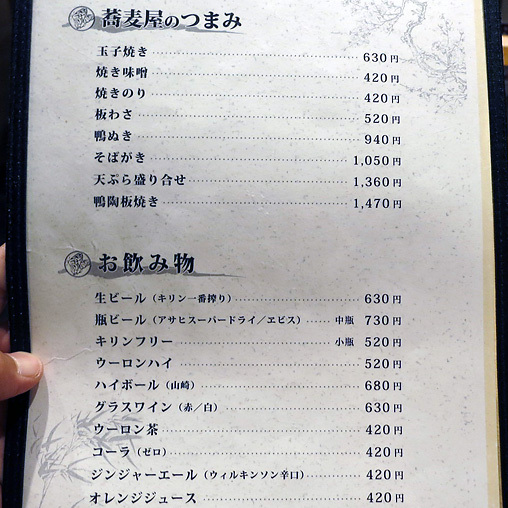 蕎麦屋のつまみ
玉子焼き 630円
焼き味噌 420円
焼きのり 420円
板わさ 520円
鴨ぬき 940円
そばがき 1,050円
天ぷら盛り合せ 1,360円
鴨陶板焼き 1,470円
お飲み物
生ビール（キリン一番搾り） 630円
瓶ビール（アサヒスーパードライ／ヱビス） 中瓶 730円
キリンフリー 小瓶 520円
ウーロンハイ 520円
ハイボール（山崎） 680円
グラスワイン（赤／白） 630円
ウーロン茶 420円
コーラ（ゼロ） 420円
ジンジャーエール（ウィルキンソン辛口） 420円
オレンジジュース 420円